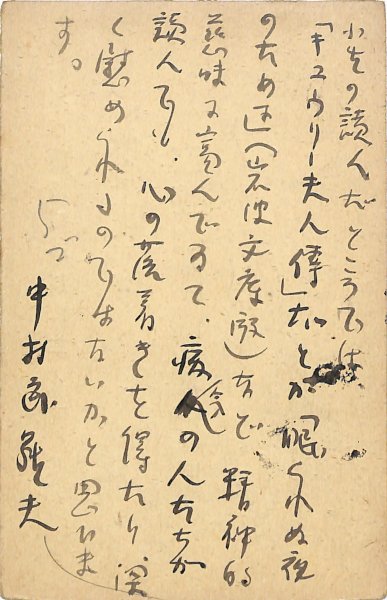 小生の読んだところでは
「キユウリー夫人傳」だとか「眠られぬ夜
のために」(岩波文庫版)など精神的
慈味に富んでゐて、疲れの人たちが
読んでも、心の落着きを得たり、深
く慰められるのではないかと思ひま
す。
中村武羅夫